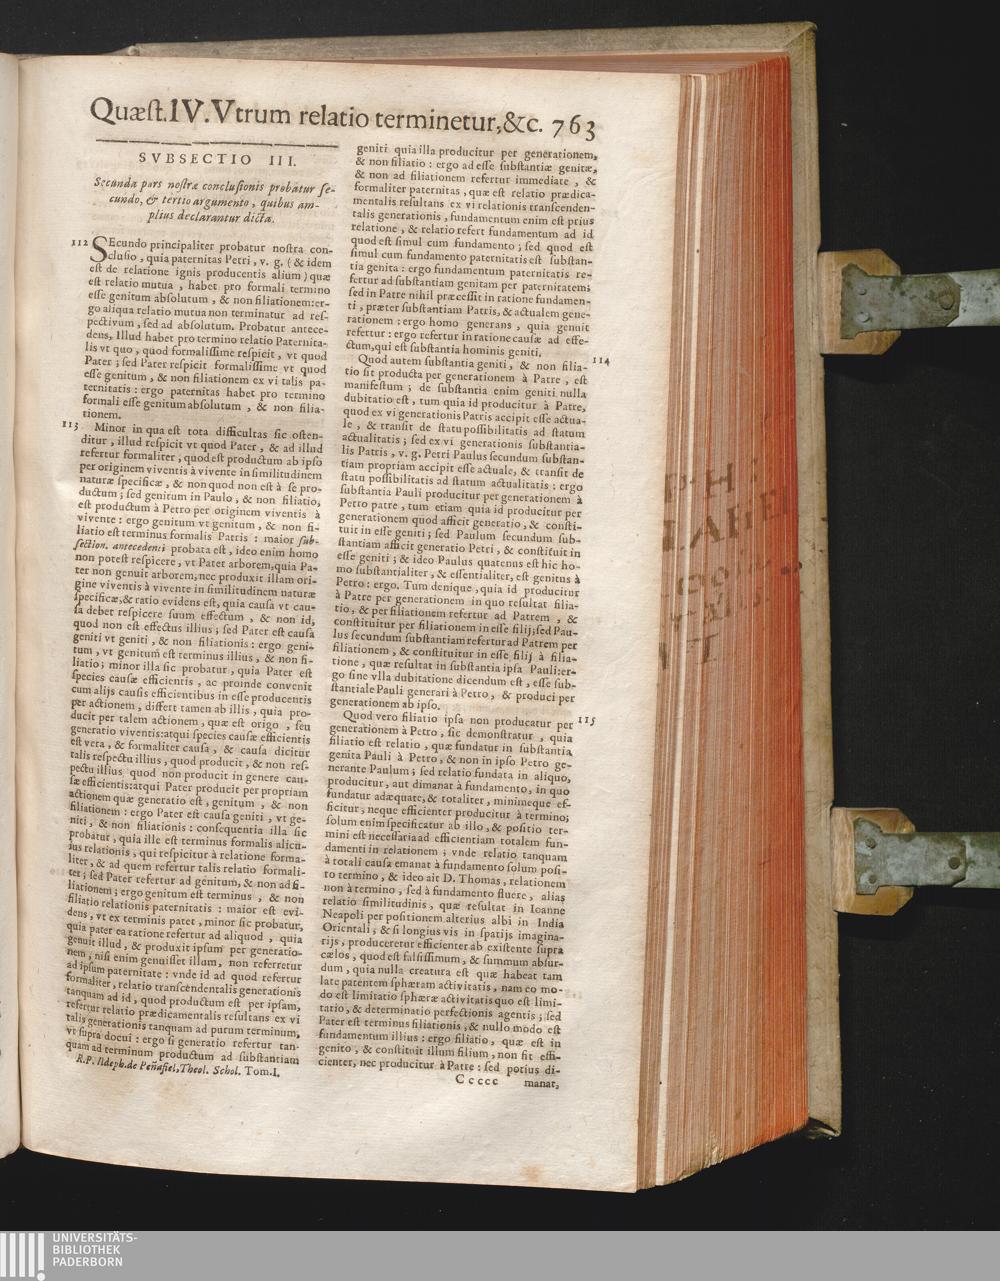 Quæst. IV. Vtrum relatio terminetur, &c. 763
SVBSECTIO III.
Secunda pars nostræ conclusionis probatur se-
cundo, & tertio argumento, quibus am-
plius declarantur dicta.
112 SEcundo principaliter probatur nostra con-
clusio, quia paternitas Petri, v. g. (& idem
est de relatione ignis producentis alium) quæ
est relatio mutua, habet pro formali termino
esse genitum absolutum, & non filiationem: er-
go aliqua relatio mutua non terminatur ad res-
pectivum, sed ad absolutum. Probatur antece-
dens, Illud habet pro termino relatio Paternita-
lis vt quo, quod formalissime respicit, vt quod
Pater; sed Pater respicit formalissime vt quod
esse genitum, & non filiationem ex vi talis pa-
ternitatis: ergo paternitas habet pro termino
formali esse genitum absolutum, & non filia-
tionem.
113 Minor in qua est tota difficultas sic osten-
ditur, illud respicit vt quod Pater, & ad illud
refertur formaliter, quod est productum ab ipso
per originem viventis à vivente in similitudinem
naturæ specificæ, & non quod non est à se pro-
ductum; sed genitum in Paulo, & non filiatio,
est productum à Petro per originem viventis à
vivente: ergo genitum vt genitum, & non fi-
liatio est terminus formalis Patris: maior sub-
section. antecedenti probata est, ideo enim homo
non potest respicere, vt Pater arborem, quia Pa-
ter non genuit arborem, nec produxit illam ori-
gine viventis à vivente in similitudinem naturæ
specificæ, & ratio evidens est, quia causa vt cau-
sa debet respicere suum effectum, & non id,
quod non est effectus illius; sed Pater est causa
geniti vt geniti, & non filiationis: ergo geni-
tum, vt genitum est terminus illius, & non fi-
liatio; minor illa sic probatur, quia Pater est
species causæ efficientis, ac proinde convenit
cum alijs causis efficientibus in esse producentis
per actionem, differt tamen ab illis, quia pro-
ducit per talem actionem, quæ est origo, seu
generatio viventis: atqui species causæ efficientis
est vera, & formaliter causa, & causa dicitur
talis respectu illius, quod producit, & non res-
pectu illius quod non producit in genere cau-
sæ efficientis: atqui Pater producit per propriam
actionem quæ generatio est, genitum, & non
filiationem: ergo Pater est causa geniti, vt ge-
niti, & non filiationis: consequentia illa sic
probatur, quia ille est terminus formalis alicu-
ius relationis, qui respicitur à relatione forma-
liter, & ad quem refertur talis relatio formali-
ter; sed Pater refertur ad genitum, & non ad fi-
liationem; ergo genitum est terminus, & non
filiatio relationis paternitatis: maior est evi-
dens, vt ex terminis patet, minor sic probatur,
quia pater ea ratione refertur ad aliquod, quia
genuit illud, & produxit ipsum per generatio-
nem, nisi enim genuisset illum, non referretur
ad ipsum paternitate: vnde id ad quod refertur
formaliter, relatio transcendentalis generationis
tanquam ad id, quod productum est per ipsam,
refertur relatio prædicamentalis resultans ex vi
talis generationis tanquam ad purum terminum,
vt supra docui: ergo si generatio refertur tan-
quam ad terminum productum ad substantiam
R.P. Ildeph. de Peñafiel, Theol. Schol. Tom. I.
geniti quia illa producitur per generationem,
& non filiatio: ergo ad esse substantiæ genitæ,
& non ad filiationem refertur immediate, &
formaliter paternitas, quæ est relatio prædica-
mentalis resultans ex vi relationis transcenden-
talis generationis, fundamentum enim est prius
relatione, & relatio refert fundamentum ad id
quod est simul cum fundamento; sed quod est
simul cum fundamento paternitatis est substan-
tia genita: ergo fundamentum paternitatis re-
fertur ad substantiam genitam per paternitatem;
sed in Patre nihil præcessit in ratione fundamen-
ti, præter substantiam Patris, & actualem gene-
rationem: ergo homo generans, quia genuit
refertur: ergo refertur in ratione causæ ad effe-
ctum, qui est substantia hominis geniti.
Quod autem substantia geniti, & non filia- 114
tio sit producta per generationem à Patre, est
manifestum; de substantia enim geniti nulla
dubitatio est, tum quia id producitur à Patre,
quod ex vi generationis Patris accipit esse actua-
le, & transit de statu possibilitatis ad statum
actualitatis; sed ex vi generationis substantia-
lis Patris, v. g. Petri Paulus secundum substan-
tiam propriam accipit esse actuale, & transit de
statu possibilitatis ad statum actualitatis: ergo
substantia Pauli producitur per generationem à
Petro patre, tum etiam quia id producitur per
generationem quod afficit generatio, & consti-
tuit in esse geniti; sed Paulum secundum sub-
stantiam afficit generatio Petri, & constituit in
esse geniti; & ideo Paulus quatenus est hic ho-
mo substantialiter, & essentialiter, est genitus à
Petro: ergo. Tum denique, quia id producitur
à Patre per generationem in quo resultat filia-
tio, & per filiationem refertur ad Patrem, &
constituitur per filiationem in esse filij; sed Pau-
lus secundum substantiam refertur ad Patrem per
filiationem, & constituitur in esse filij à filia-
tione, quæ resultat in substantia ipsa Pauli: er-
go sine vlla dubitatione dicendum est, esse sub-
stantiale Pauli generari à Petro, & produci per
generationem ab ipso.
Quod vero filiatio ipsa non producatur per 115
generationem à Petro, sic demonstratur, quia
filiatio est relatio, quæ fundatur in substantia
genita Pauli à Petro, & non in ipso Petro ge-
nerante Paulum; sed relatio fundata in aliquo,
producitur, aut dimanat à fundamento, in quo
fundatur adæquate, & totaliter, minimeque ef-
ficitur, neque efficienter producitur à termino;
solum enim specificatur ab illo, & positio ter-
mini est necessaria ad efficientiam totalem fun-
damenti in relationem; vnde relatio tanquam
à totali causa emanat à fundamento solum posi-
to termino, & ideo ait D. Thomas, relationem
non à termino, sed à fundamento fluere, alias
relatio similitudinis, quæ resultat in Ioanne
Neapoli per positionem alterius albi in India
Orientali, & si longius vis in spatijs imagina-
rijs, produceretur efficienter ab existente supra
cælos, quod est falsissimum, & summum absur-
dum, quia nulla creatura est quæ habeat tam
late patentem sphæram activitatis, nam eo mo-
do est limitatio sphæræ activitatis quo est limi-
tatio, & determinatio perfectionis agentis; sed
Pater est terminus filiationis, & nullo modo est
fundamentum illius: ergo filiatio, quæ est in
genito, & constituit illum filium, non fit effi-
cienter, nec producitur à Patre: sed potius di-
Ccccc manat,
UNIVERSITÄTS-
BIBLIOTHEK
PADERBORN